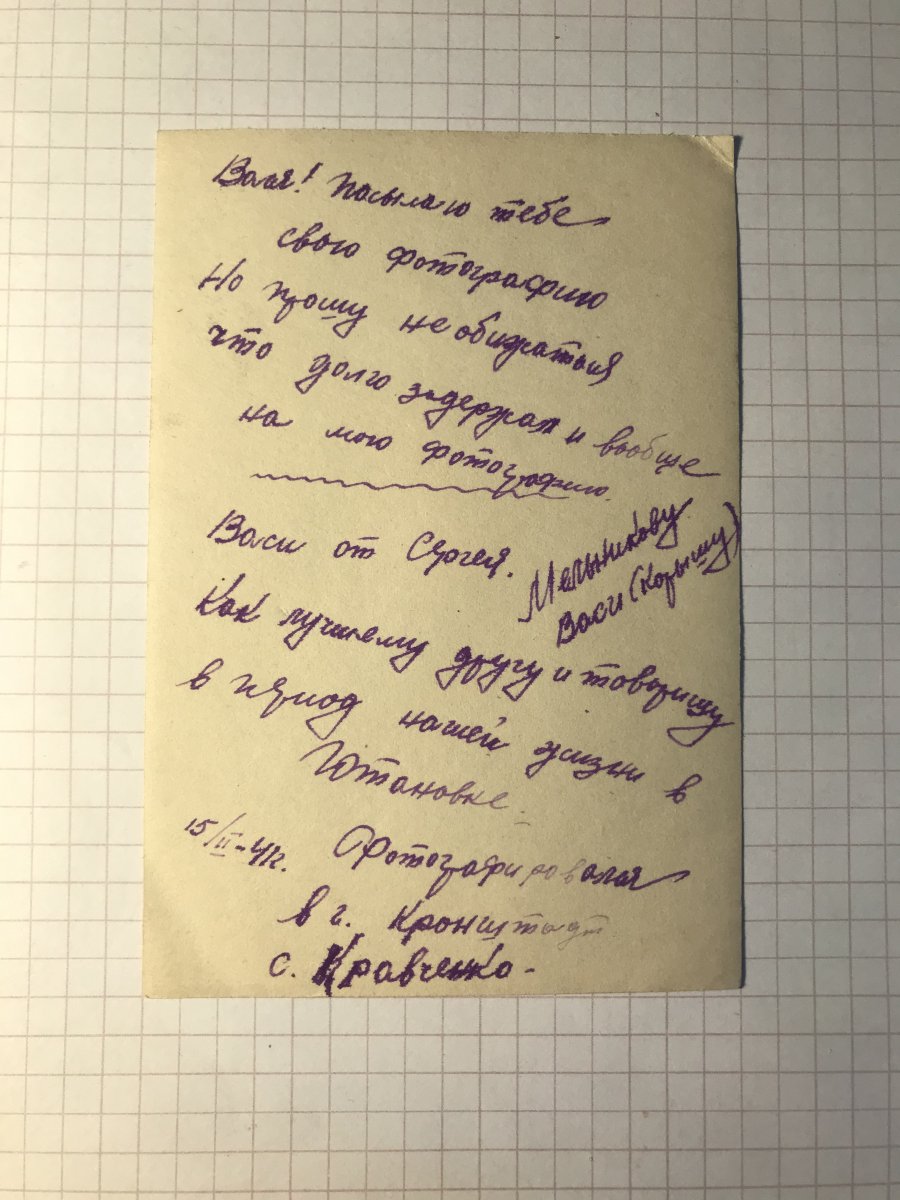 Вася! Посылаю тебе
свою фотографию
Но прошу не обижаться
что долго задержал и вообще
на мою фотографию.
Васи от Сергея.
Мельникову
Васи (Корышу)
Как лучшему другу и товарищу
в период нашей жизни в
Ютановке.
15/II-41г. Фотографировался
в г. Кронштадт
С. Кравченко-